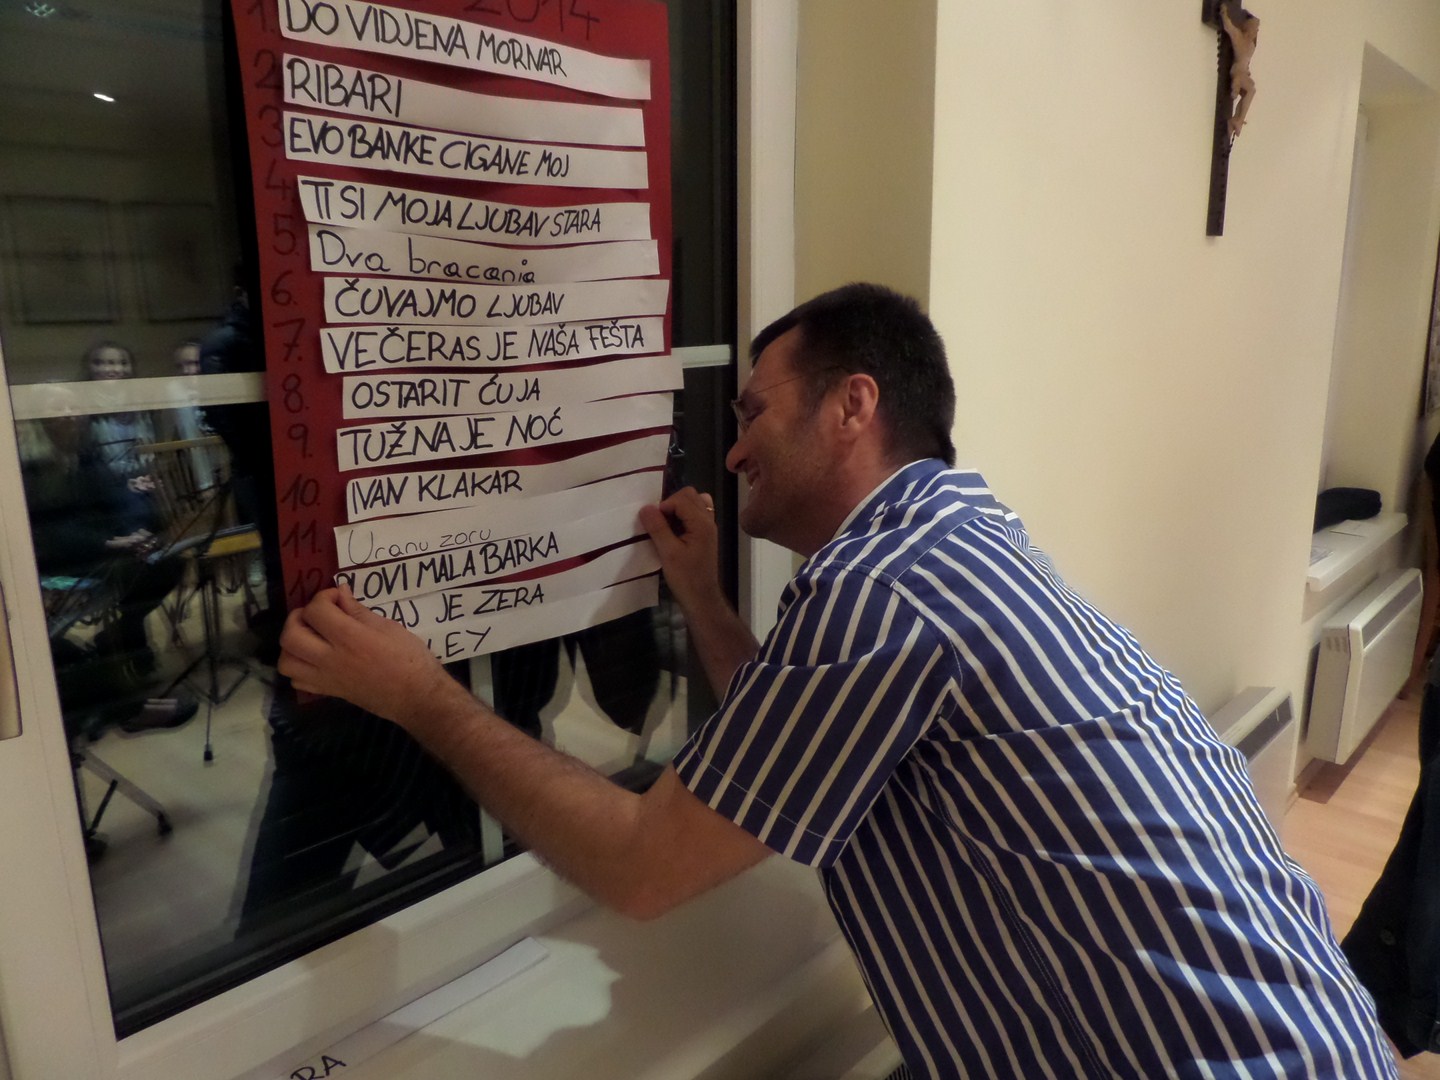 2014
1. DO VIDJENA MORNAR
2. RIBARI
3. EVO BANKE CIGANE MOJ
4. TI SI MOJA LJUBAV STARA
5. Dva bracania
6. ČUVAJMO LJUBAV
7. VEČERAS JE NAŠA FEŠTA
8. OSTARIT ĆU JA
9. TUŽNA JE NOĆ
10. IVAN KLAKAR
11. Uranu zoru
12. PLOVI MALA BARKA
JE ZERA
LEY
RA